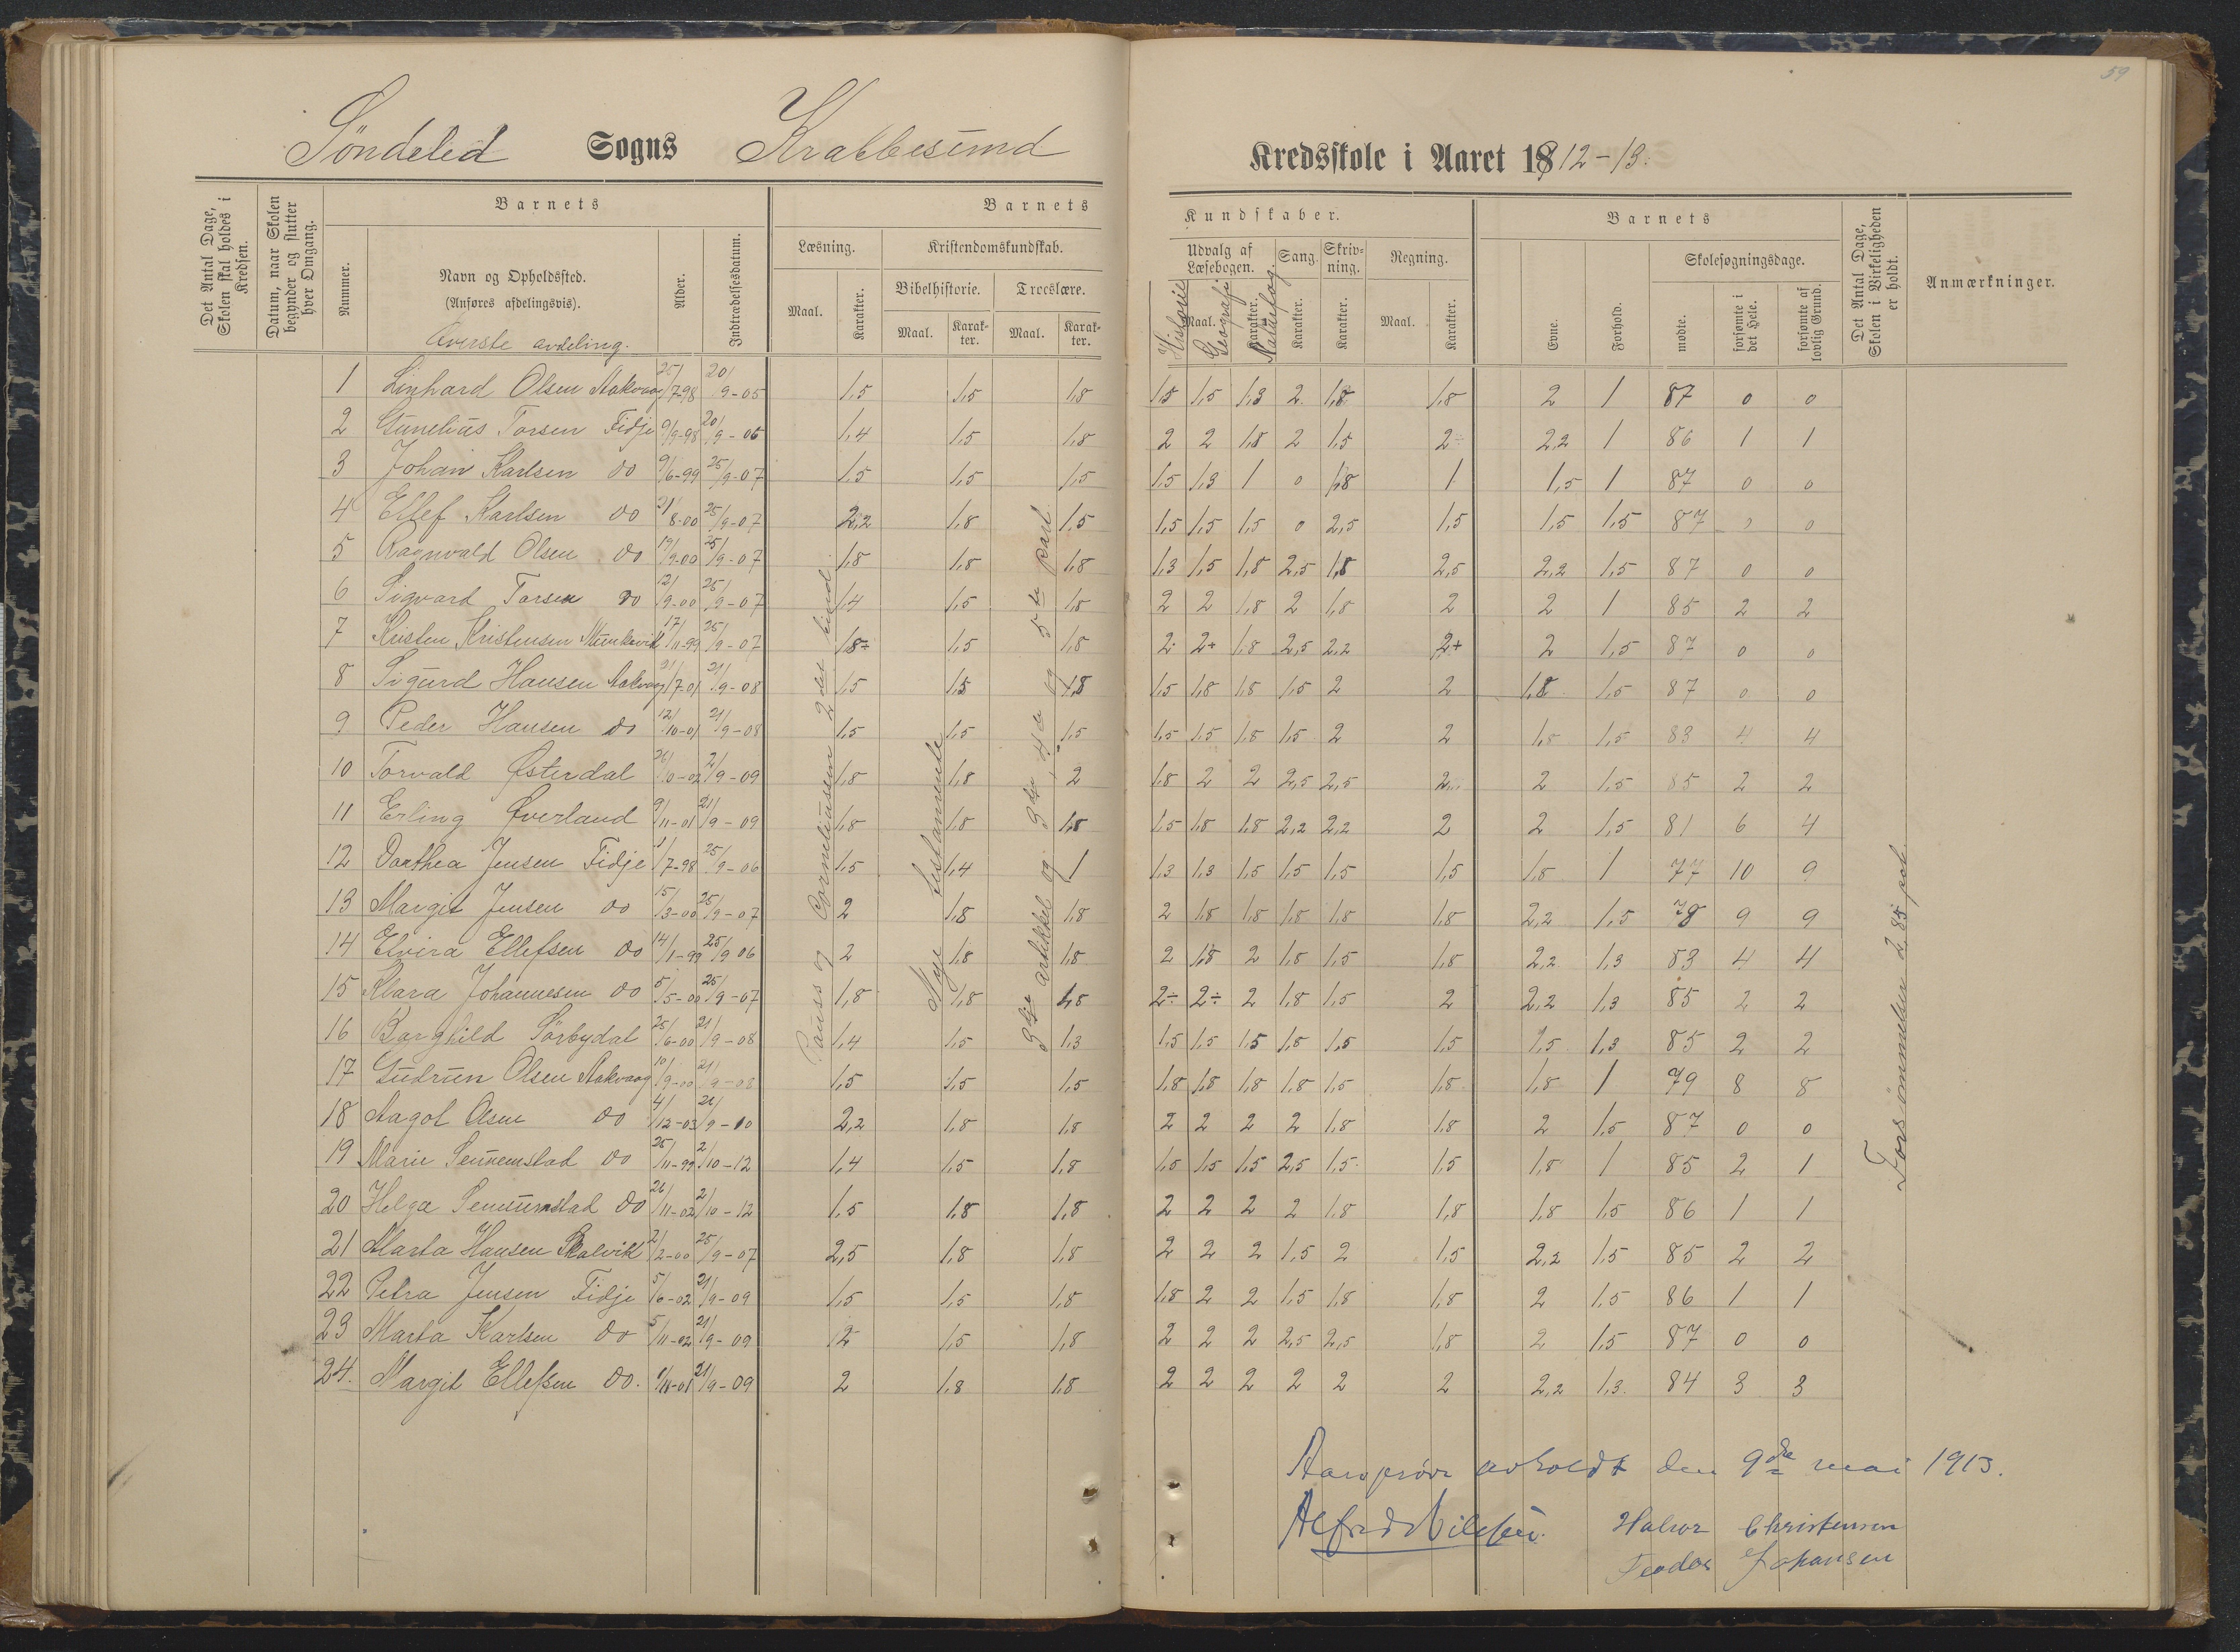 59
Søndeled Sogns Krabbesund Kredsskole i Aaret 1912-13.
Det Antal Dage, Skolen skal holdes i Kredsen.
Datum, naar Skolen begynder og slutter hver Omgang.
Barnets
Nummer.
Navn og Opholdssted.
(Anføres afdelingsvis).
Øverste avdeling.
Alder.
Indtrædelsesdatum.
Barnets Kundskaber.
Læsning. Kristendomskundskab. Udvalg af Læsebogen. Sang. Skrivning. Regning.
Maal. Karakter.
Bibelhistorie. Troeslære.
Maal. Karakter. Maal. Karakter.
Historie Maal. Geografi Karakter. Naturfag. Karakter. Karakter. Maal. Karakter.
Barnets
Evne. Forhold. Skolesøgningsdage.
mødte. forsømte i det Hele. forsømte af lovlig Grund.
Det Antal Dage, Skolen i Virkeligheden er holdt.
Anmærkninger.
1 Linhard Olsen Aakvaag 25/7-98 20/9-05 1,5 1,5 1,8 1,5 1,5 1,3 2 1,8 1,8 2 1 87 0 0
2 Gunelius Torsen Fidje 9/9-98 20/9-06 1,4 1,5 1,8 2 2 1,8 2 1,5 2÷ 2,2 1 86 1 1
3 Johan Karlsen do 9/6-99 25/9-07 1,5 1,5 1,5 1,5 1,3 1 0 1,8 1 1,5 1 87 0 0
4 Ellef Karlsen do 21/8-00 25/9-07 2,2 1,8 1,5 1,5 1,5 1,5 0 2,5 1,5 1,5 1,5 87 0 0
5 Ragnvald Olsen do 19/9-00 25/9-07 1,8 1,8 1,8 1,3 1,5 1,8 2,5 1,8 2,5 2,2 1,5 87 0 0
6 Sigvard Torsen do 12/9-00 25/9-07 1,4 1,5 1,8 2 2 1,8 2 1,8 2 2 1 85 2 2
7 Kristen Kristensen 17/11-99 25/9-07 1,8÷ 1,5 1,8 2 2+ 1,8 2,5 2,2 2+ 2 1,5 87 0 0
8 Sigurd Hansen Aakvaag 21/7-01 21/9-08 1,5 1,5 1,8 1,5 1,8 1,8 1,5 2 2 1,8 1,5 87 0 0
9 Peder Hansen do 12/10-01 21/9-08 1,5 1,5 1,5 1,5 1,5 1,8 1,5 2 2 1,8 1,5 83 4 4
10 Torvald Østerdal 26/10-02 2/9-09 1,8 1,8 2 1,8 2 2 2,5 2,5 2 2 1,5 85 2 2
11 Erling Øverland 9/11-01 21/9-09 1,8 1,8 1,8 1,5 1,8 1,8 2,2 2,2 2 2 1,5 81 6 4
12 Dorthea Jensen Fidje 1/7-98 25/9-06 1,5 1,4 1 1,3 1,3 1,5 1,5 1,5 1,5 1,8 1 77 10 9
13 Margit Jensen do 15/3-00 25/9-07 2 1,8 1,8 2 1,8 1,8 1,8 1,8 1,8 2,2 1,5 78 9 9
14 Elvira Ellefsen do 14/1-99 25/9 06 2 1,8 1,8 2 1,8 2 1,8 1,5 1,8 2,2 1,3 83 4 4
15 Klara Johannesen do 5/5-00 25/9-07 1,8 1,8 1,8 2÷ 2÷ 2 1,8 1,5 2 2,2 1,3 85 2 2
16 Borghild Sørbydal 25/6-00 21/9-08 1,4 1,5 1,3 1,5 1,5 1,5 1,8 1,5 1,5 1,5 1,3 85 2 2
17 Gudrun Olsen Aakvaag 10/9-00 21/9-08 1,5 1,5 1,5 1,8 1,8 1,8 1,8 1,5 1,8 1,8 1 79 8 8
18 Aagot Olsen do 4/12-03 21/9-10 2,2 1,8 1,8 2 2 2 2 1,8 1,8 2 1,5 87 0 0
19 Marie Sennemstad do 25/11-99 2/10-12 1,4 1,5 1,8 1,5 1,5 1,5 2,5 1,5 1,5 1,8 1 85 2 1
20 Helga Sennumstad do 26/11-02 2/10-12 1,5 1,8 1,8 2 2 2 2 1,8 1,8 1,8 1,5 86 1 1
21 Marta Hansen 2/2-00 25/9-07 2,5 1,8 1,8 2 2 2 1,5 2 1,5 2,2 1,5 85 2 2
22 Petra Jensen Fidje 5/6-02 21/9-09 1,5 1,5 1,8 1,8 2 2 1,5 1,8 1,8 2 1,5 86 1 1
23 Marta Karlsen do 5/11-02 21/9-09 2 1,5 1,8 2 2 2 2,5 2,5 1,8 2 1,5 87 0 0
24. Margit Ellefsen do. 1/11-01 21/9-09 2 1,8 1,8 2 2 2 2 2 2 2,2 1,3 84 3 3
Pauss og Corneliussen 2det bind
Nye testamente
3die artikkel og 3die, 4de og 5te part.
Forsømmelsen 2,85 pct.
Aarsprøve avholdt den 9de mai 1913.
Alfred Nilsen. Halvor Christensen
Teodor Johansen